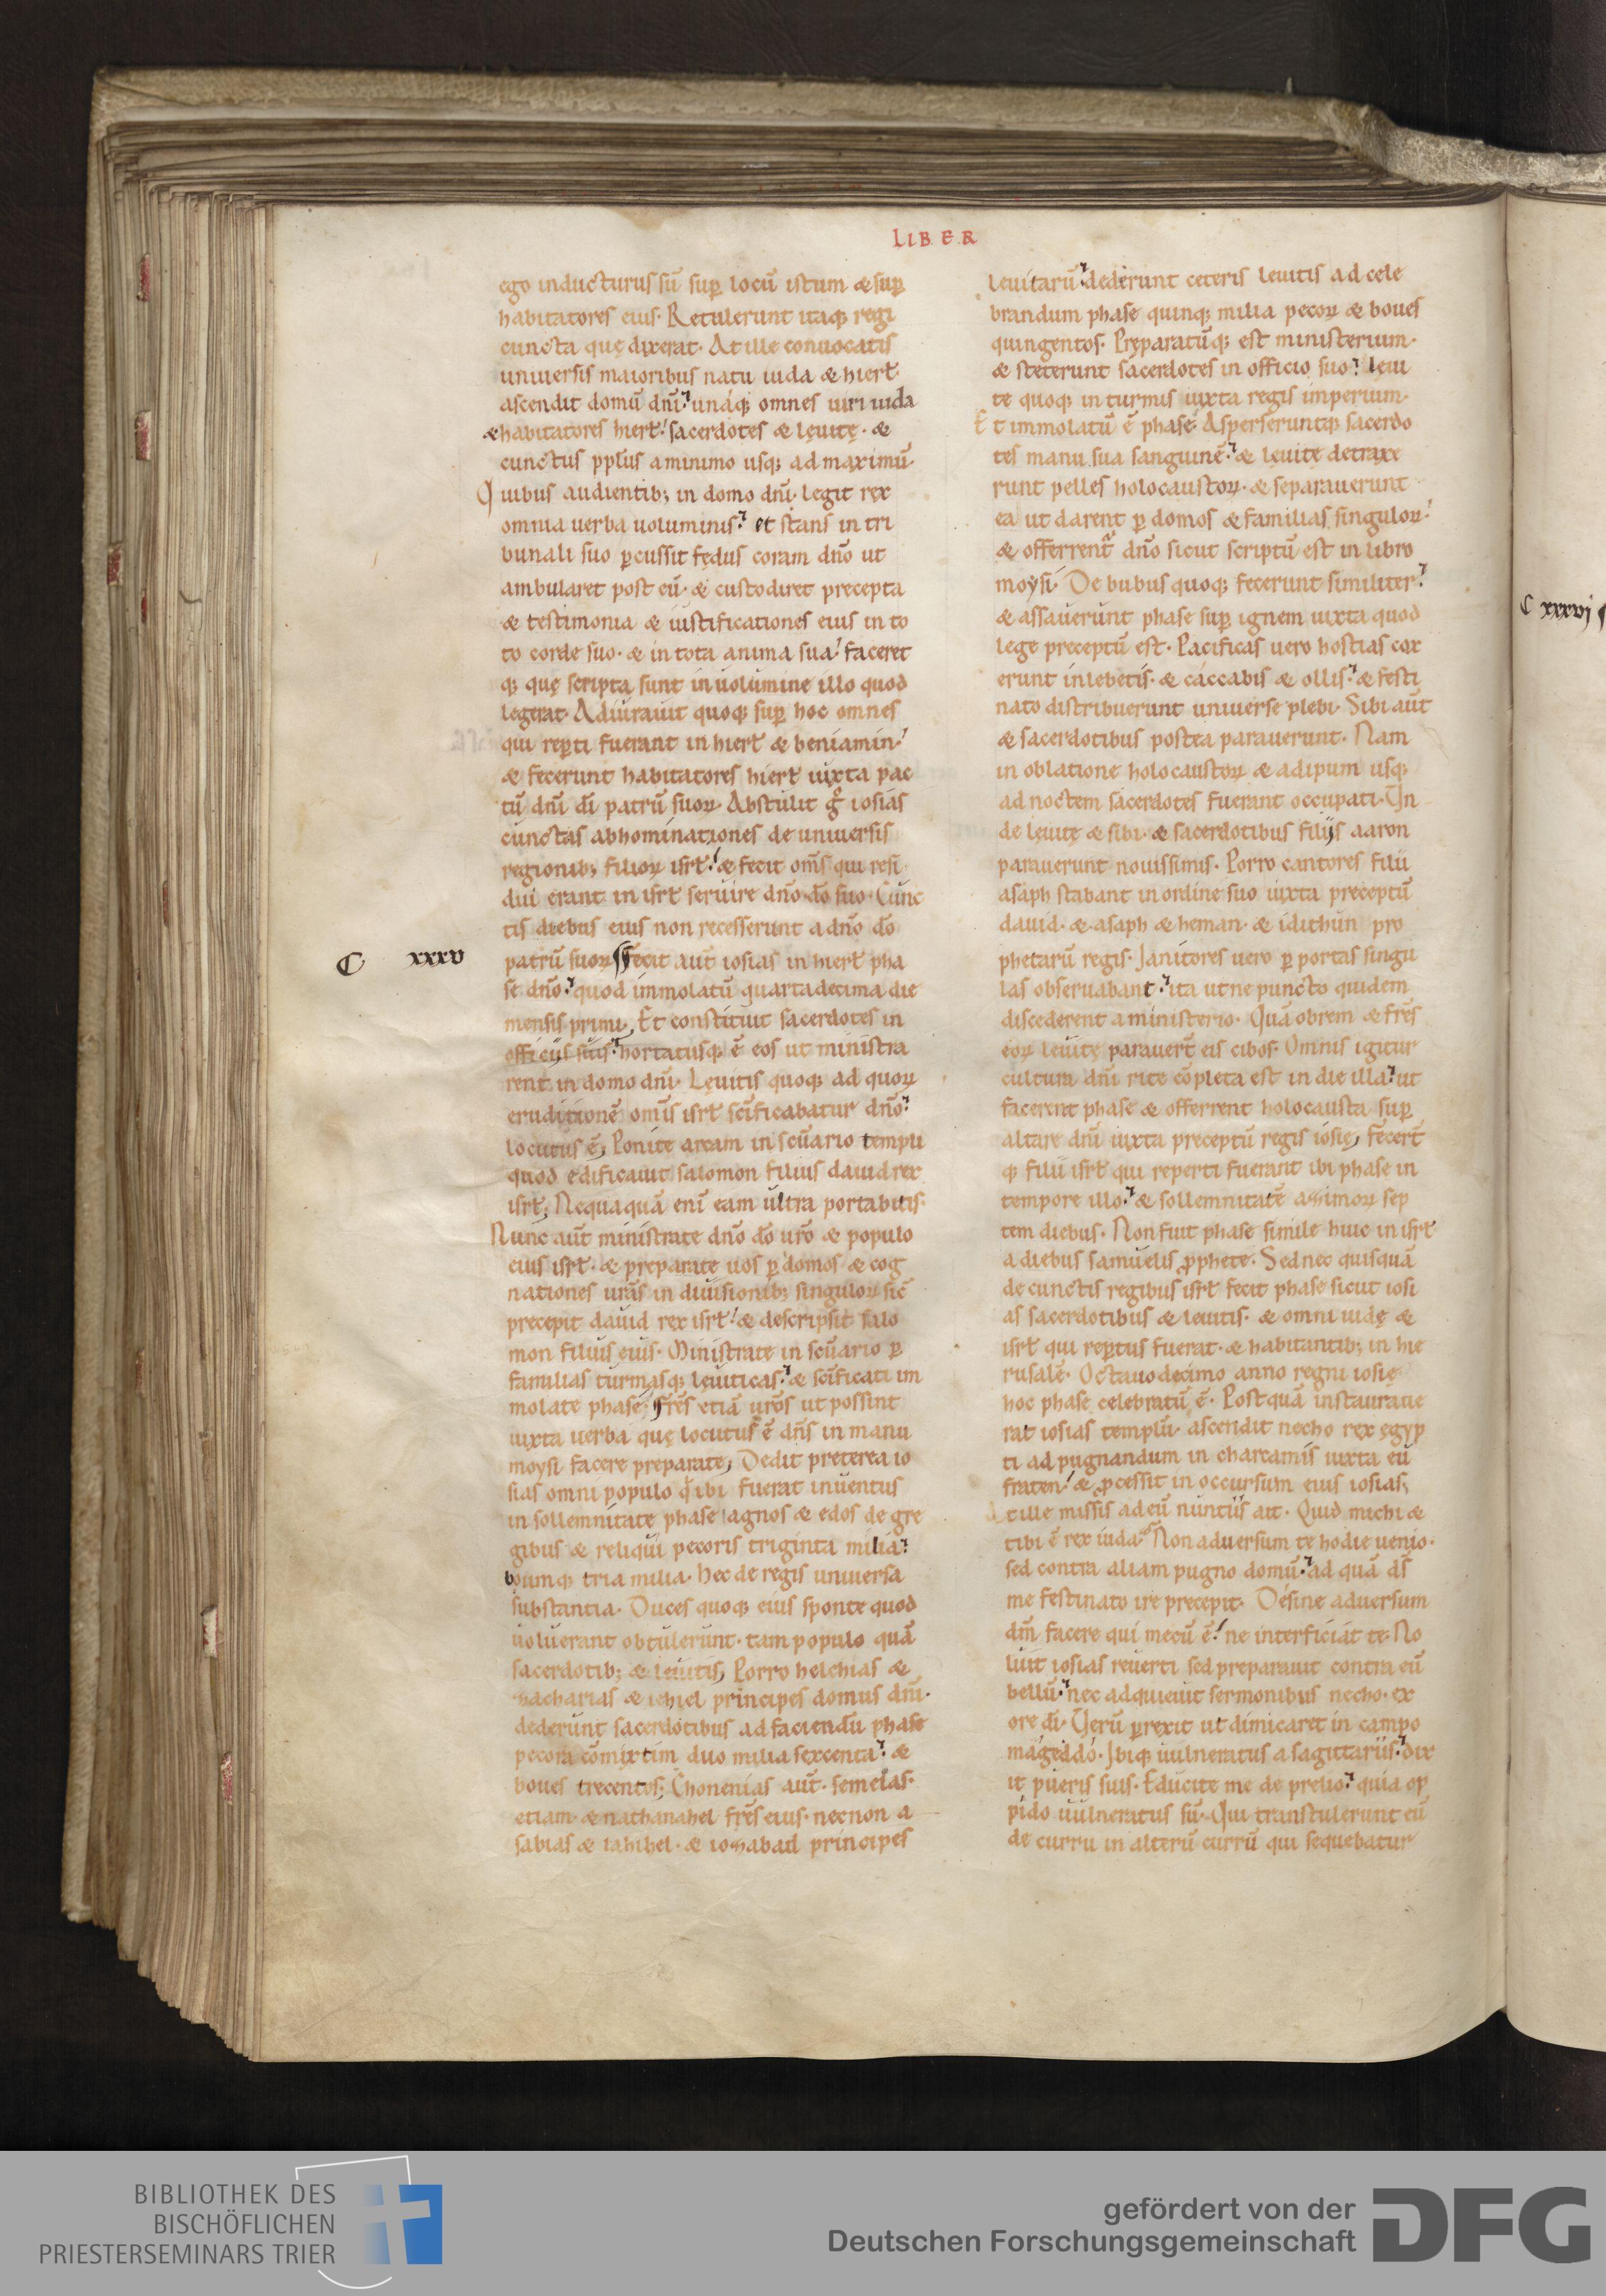 LIBER
ego inducturus sū sup̄ locū istum & sup̄
habitatores eius· Retulerunt itaq; regi
cuncta quę dixerat· At ille conuocatis
uniuersis maioribus natu iuda & hierł
ascendit domū dn̄i· unáq; omnes uiri iuda
& habitatores hierł· sacerdotes & leuitę· &
cunctus pplūs a minimo usq; ad maximū·
Quibus audientib; in domo dn̄i· legit rex
omnia uerba uoluminis· et stans in tri
bunali suo p̄cussit fędus coram dn̄o ut
ambularet post eū· & custodiret precepta
& testimonia & iustificationes eius in to
to corde suo· & in tota anima sua· faceret
q; quę scripta sunt in uolumine illo quod
legerat· Adiurauit quoq; sup̄ hoc omnes
qui rep̄ti fuerant in hierł & beniamin·
& fecerunt habitatores hierł iuxta pac
tū dn̄i dī patrū suoꝝ· Abstulit g̊ iosias
cunctas abhominationes de uniuersis
regionib; filioꝝ isrł· & fecit om̄s qui resi
dui erant in isrł seruire dn̄o dō suo· Cunc
tis diebus eius non recesserunt a dn̄o dō
C xxxv
patrū suoꝝ Fecit aut̄ iosias in hierł pha
se dn̄o· quod immolatū quartadecima die
mensis primi; Et constituit sacerdotes in
officiis suis· hortatusq; ē eos ut ministra
rent in domo dn̄i· Leuitis quoq; ad quoꝝ
eruditionē omīs isrł sc̄ificabatur dn̄o·
locutus ē; Ponite arcam in scūario templi
quod edificauit salomon filius dauid rex
isrł; Nequaquā enī eam ultra portabitis·
Nunc aut̄ ministrate dn̄o dō ur̄o & populo
eius isrł· & preparate uos p̄ domos & cog
nationes ur̄as in diuisionib; singuloꝝ sic̄
precepit dauid rex isrł· & descripsit salo
mon filius eius· Ministrate in scūario p̄
familias turmasq; leuiticas· & sc̄ificati im
molate phase; fr̄es etiā ur̄os ut possint
iuxta uerba quę locutus ē dn̄s in manu
moysi facere preparate; Dedit preterea io
sias omni populo q̇ ibi fuerat inuentus
in sollemnitate phase agnos & edos de gre
gibus & reliqui pecoris triginta milia·
boumq; tria milia· hec de regis uniuersa
substantia· Duces quoq; eius sponte quod
uoluerant obtulerunt· tam populo quā
sacerdotib; & leuitis; Porro helchias &
zacharias & iehiel principes domus dn̄i·
dederunt sacerdotibus ad faciendū phase
pecora cōmixtim duo milia sexcenta· &
boues trecentos; Chonenias aut̄· semeias·
etiam & nathanahel fr̄es eius· necnon a
sabias & iahihel· & iozabad principes
leuitarū· dederunt ceteris leuitis ad cele
brandum phase quinq; milia pecoꝝ & boues
quingentos· Preparatūq; est ministerium·
& steterunt sacerdotes in officio suo· leui
te quoq; in turmis iuxta regis imperium·
Et immolatū ē phase· Asperseruntq; sacerdo
tes manu sua sanguinē· & leuitę detraxe
runt pelles holocaustoꝝ· & separauerunt
ea ut darent p̄ domos & familias singuloꝝ·
& offerrent̄ dn̄o sicut scriptū est in libro
moysi· De bubus quoq; fecerunt similiter·
& assauerunt phase sup̄ ignem iuxta quod
lege preceptū est· Pacificas uero hostias cox
erunt in lebetis· & caccabis & ollis· & festi
nato distribuerunt uniuerse plebi· Sibi aut̄
& sacerdotibus postea parauerunt· Nam
in oblatione holocaustoꝝ & adipum usq;
ad noctem sacerdotes fuerant occupati· Un
de leuitę & sibi· & sacerdotibus filijs aaron
parauerunt nouissimis· Porro cantores filii
asaph stabant in ordine suo iuxta preceptū
dauid· & asaph & heman· & idithun pro
phetarū regis· Janitores uero p̄ portas singu
las obseruabant· ita ut ne puncto quidem
discederent a ministerio· Quā obrem & fr̄es
eoꝝ leuitę parauert̄ eis cibos· Omnis igitur
cultura dn̄i rite cōpleta est in die illa· ut
facerent phase & offerrent holocausta sup̄
altare dn̄i iuxta preceptū regis iosię; fecert̄
q; filii isrł qui reperti fuerant ibi phase in
tempore illo· & sollemnitatē azimoꝝ sep
tem diebus· Non fuit phase simile huic in isrł
a diebus samuelis p̄phete· Sed nec quisquā
de cunctis regibus isrł fecit phase sicut iosi
as sacerdotibus & leuitis· & omni iudę &
isrł qui rep̄tus fuerat· & habitantib; in hie
rusalē· Octauodecimo anno regni iosię
hoc phase celebratū ē· Postquā instauraue
rat iosias templū· ascendit necho rex egyp
ti ad pugnandum in charcamis iuxta eu
fraten· & p̄cessit in occursum eius iosias;
At ille missis ad eū nuntiis ait· Quid michi &
tibi ē rex iuda· Non aduersum te hodie uenio·
sed contra aliam pugno domū· ad quā ds̄
me festinato ire precepit· Desine aduersum
dm̄ facere qui mecū ē· ne interficiat te· No
luit iosias reuerti sed preparauit contra eū
bellū· nec adquieuit sermonibus necho· ex
ore dī· Uerū p̄rexit ut dimicaret in campo
mageddo· Ibiq; uulneratus a sagittariis· dix
it pueris suis· Educite me de prelio· quia op
pido uulneratus sū· Qui transtulerunt eū
de curru in alterū currū qui sequebatur
C xxxvj
BIBLIOTHEK DES
BISCHÖFLICHEN
PRIESTERSEMINARS TRIER
gefördert von der
Deutschen Forschungsgemeinschaft
DFG